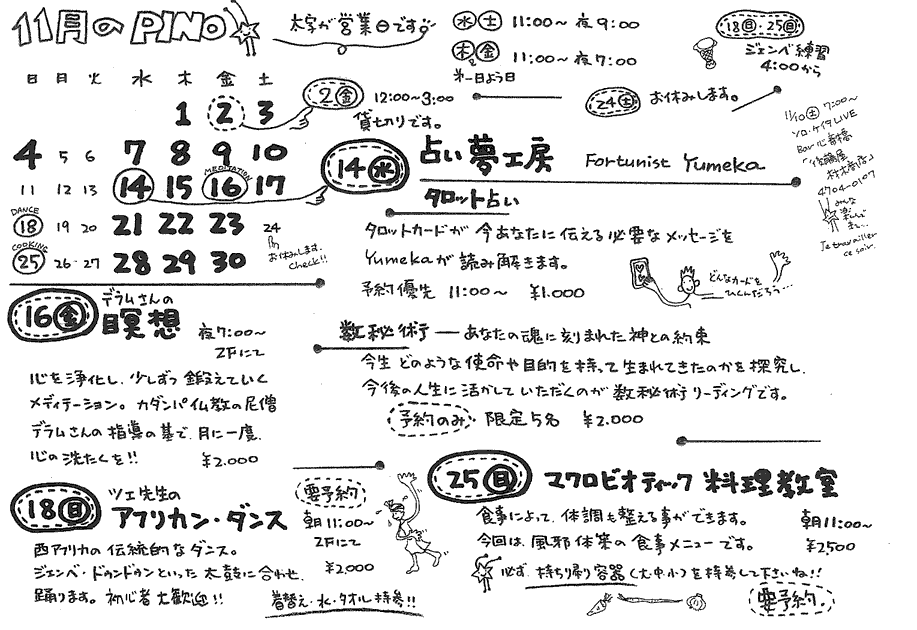 11月の PINO
太字が営業日です
水 土 11:00〜 夜 9:00
木 金 11:00〜 夜 7:00
第一日よう日
18日・25日
ジェンベ練習
4:00から
日 月 火 水 木 金 土
1 2 3
4 5 6 7 8 9 10
MEDITATION
11 12 13 14 15 16 17
DANCE
18 19 20 21 22 23 24
COOKING
25 26・27 28 29 30
お休みします。
check!!
2金 12:00〜3:00
貸切りです。
24土 お休みします。
11/10土 7:00〜
ソロ・ケイタ LIVE
Bar 心斎橋
4704-0107
みんな
楽しんで
Je travailler
ce soir.
14水 占い夢工房 Fortunist Yumeka
タロット占い
タロットカードが 今あなたに伝える必要なメッセージを
Yumekaが 読み解きます。
予約優先 11:00〜 ¥1.000
どんなカードを
ひくんだろう…
数秘術 ― あなたの魂に刻まれた神との約束
今生 どのような使命や目的を持って生まれてきたのかを探究し、
今後の人生に活かしていただくのが 数秘術リーディングです。
予約のみ・限定5名 ¥2.000
16金 デラムさんの
瞑想 夜7:00〜
2Fにて
心を浄化し、少しずつ 鍛えていく
メディテーション。カダンパ仏教の尼僧
デラムさんの指導の基で、月に一度、
心の洗たくを!! ¥2.000
18日 ツェ先生の
アフリカン・ダンス
要予約
朝11:00〜
2Fにて
¥2.000
西アフリカの伝統的なダンス。
ジェンベ・ドゥンドゥンといった太鼓に合わせ、
踊ります。初心者大歓迎!!
着替え・水・タオル持参!!
25日 マクロビオティック 料理教室
食事によって、体調も整える事ができます。 朝11:00〜
今回は、風邪体策の食事メニューです。 ¥2500
必ず、持ち帰り容器(大中小)を持参して下さいね!!
要予約.